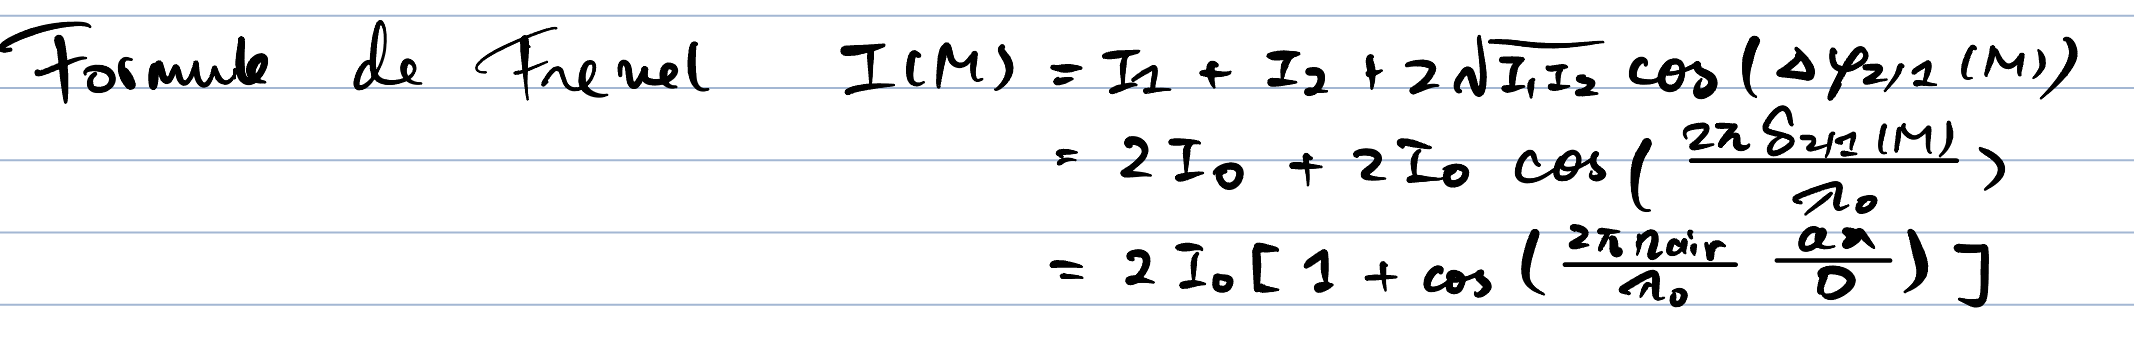 Formule de Frenel I(M) = I1 + I2 + 2√(I1I2) cos(Δφ2/1(M))
= 2I0 + 2I0 cos(2π δ2/1(M) / λ0)
= 2I0[1 + cos(2π nair / λ0 ax / D)]